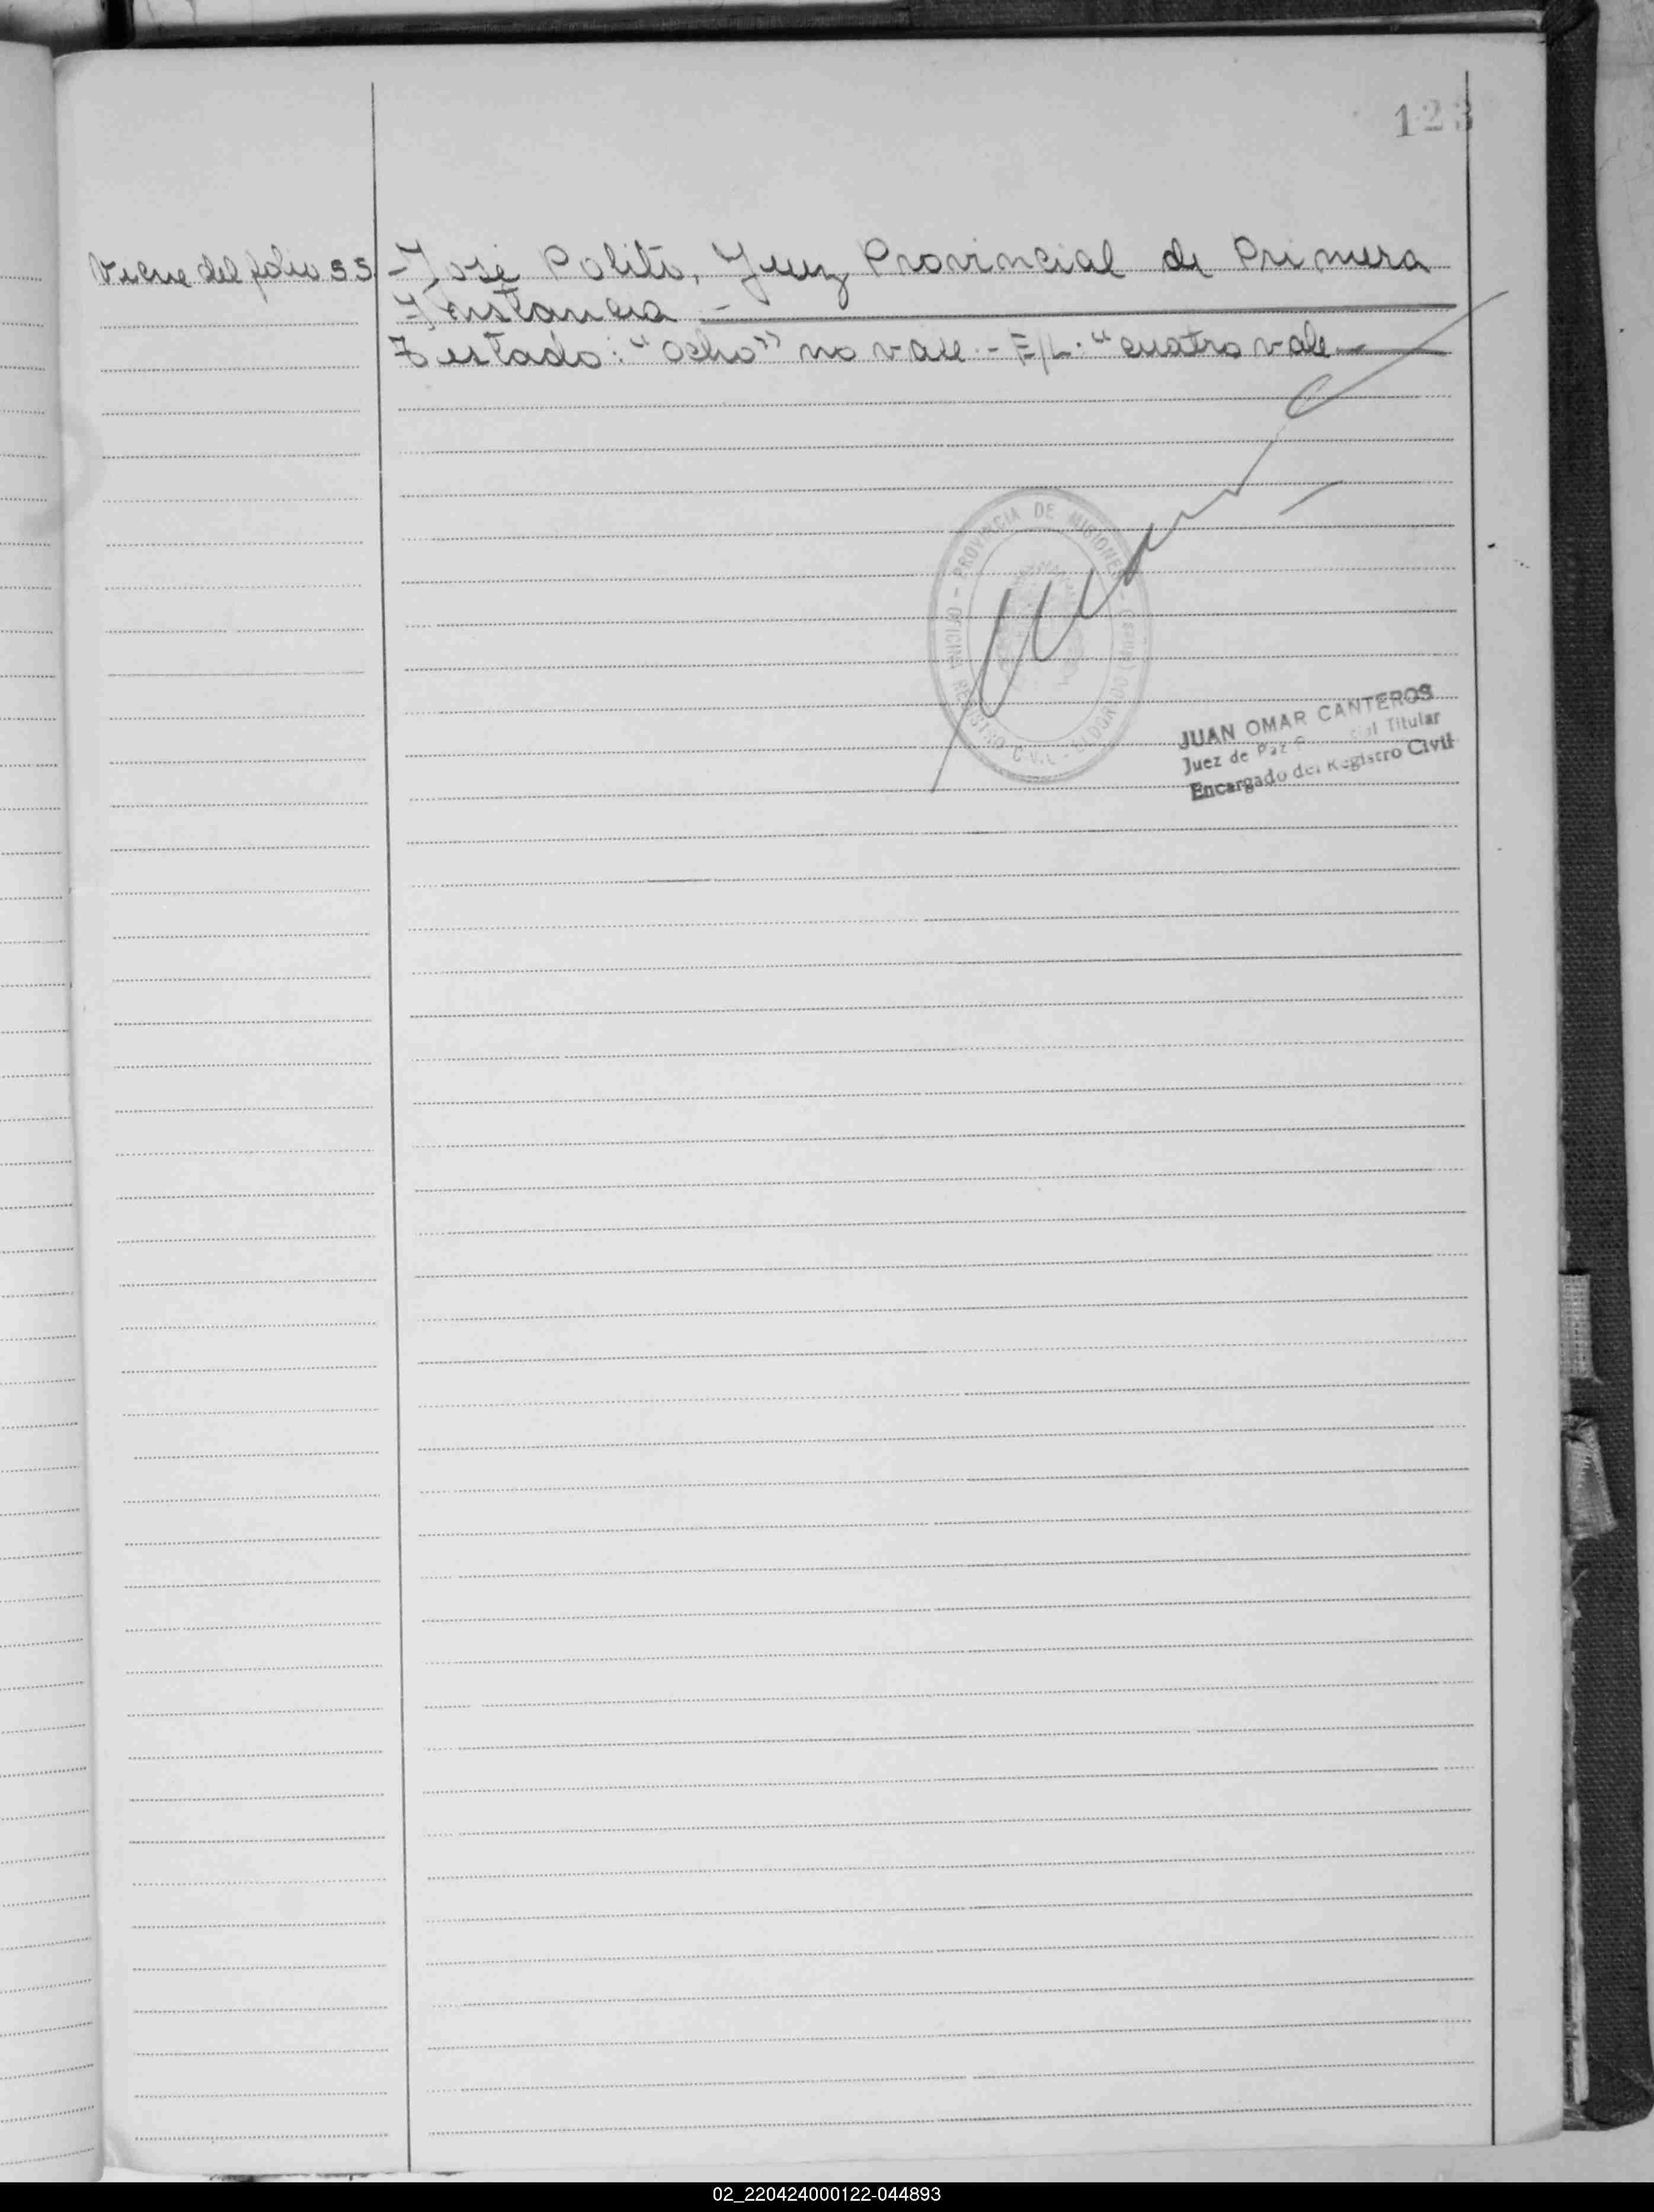 123
Viene del folio 55
-José Polito, Juez Provincial de Primera
Instancia.-
Testado: "ocho" no vale.- E/L: "cuatro vale.-
PROVINCIA DE MISIONES
OFICINA REGISTRO CIVIL - ELDORADO
JUAN OMAR CANTEROS
Juez de Paz Titular
Encargado del Registro Civil
02_220424000122-044893